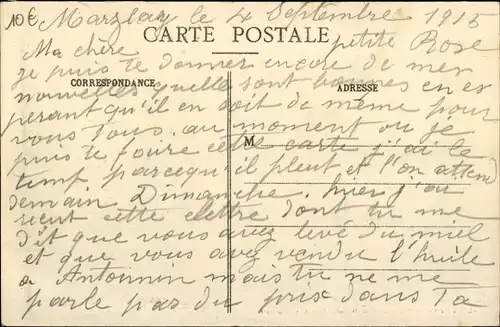 10€ Marzley le 4 Septembre 1915
CARTE POSTALE
Ma chère petite Rose
je puis te donner encore de mes
CORRESPONDANCE
ADRESSE
nouvelles quelle sont bonnes en es
perant qu'il en soit de même pour
vous tous. au moment ou je
M
puis te faire cette carte j'ai le
temp parcequ'il pleut et l'on attend
demain Dimanche. hier j'ai
recut cette lettre dont tu me
dit que vous avez levé du miel
et que vous avez vendu l'huile
a Antonnin mais tu ne me
parle pas du prix dans Ta